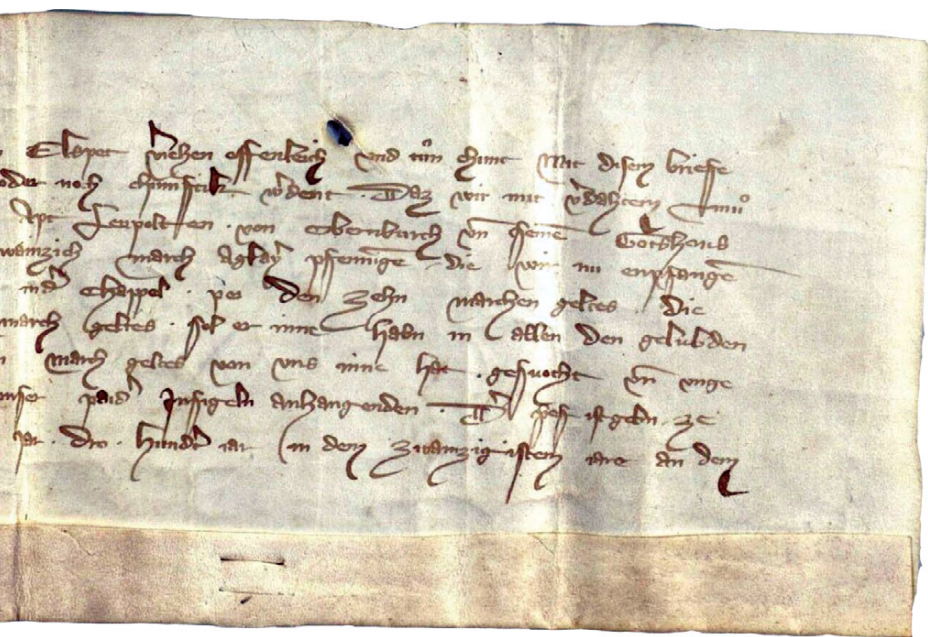 Elspet viehen offenleich vnd tůn chunt Mit disem briefe
oder noch chumftich wͤdent. Daz wir mit vͦdahtem můͦ
Apt Leupolten. von Obernburch vn̄ seinē Gotshous
march Aglayͤ pfennīge. die wir nu enpfangē
indͤ Chappel. per den Zehn marchen geltes. die
march geltes. sol er inne habn in allen den gelubden
March geltes von vns inne hat. gesuocht vn̄ vnge
vnser paidͤ Insigeln anhangenden. ist gebn. ze
iar. Driv. Hundͤt iar in dem Zwainzigistem iare an dem